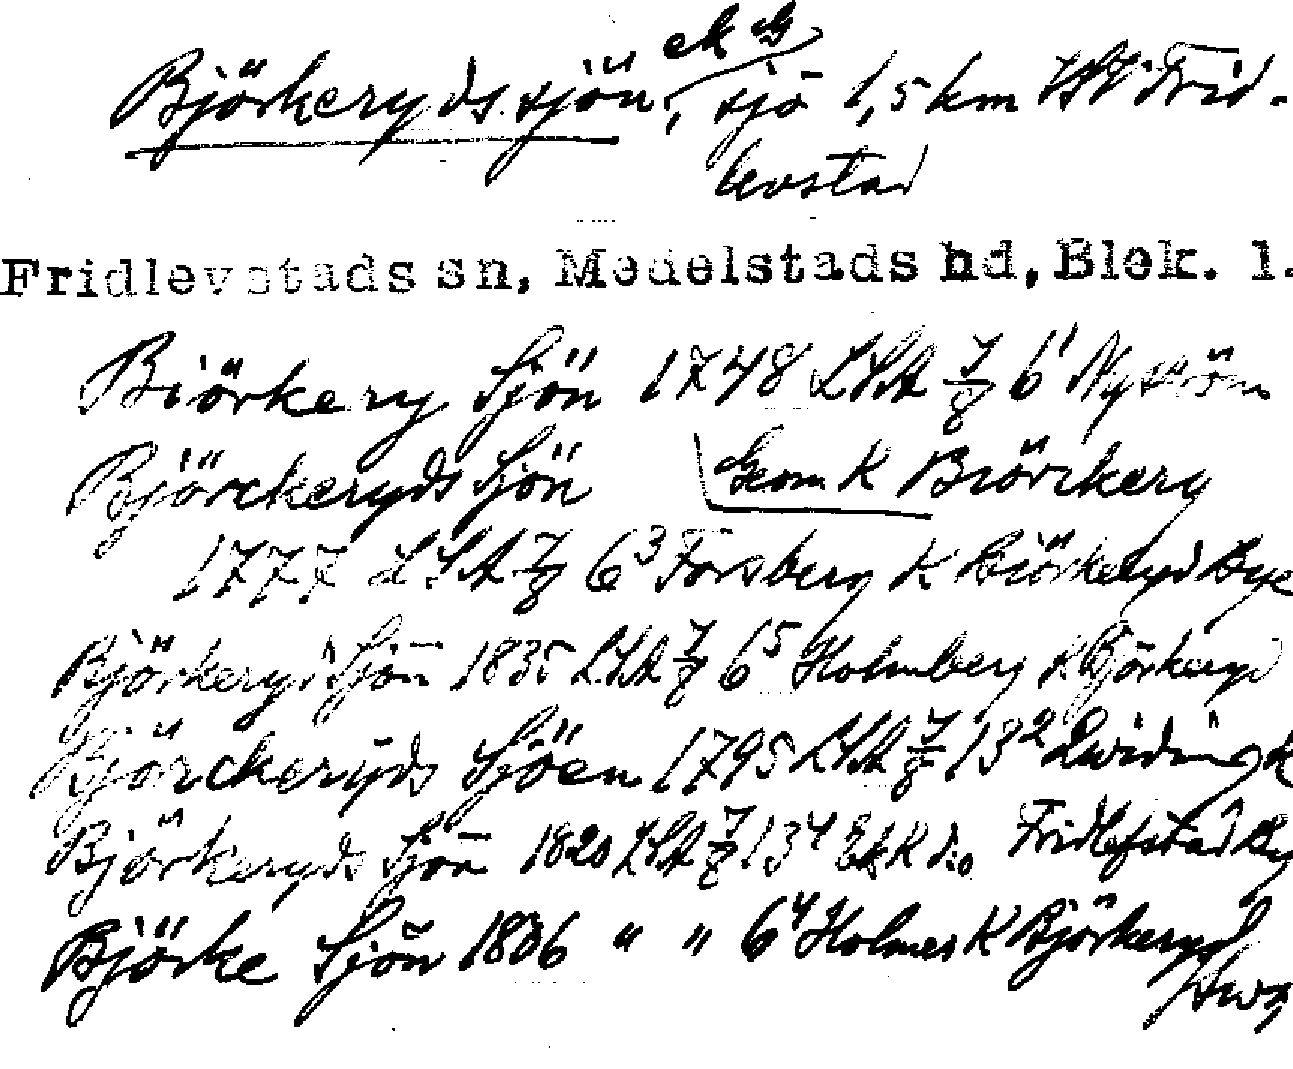 ek G
Björkerydssjön, sjö 1,5 km Frid-
levstad
Fridlevstads sn, Medelstads hd, Blek. l.
Biörkery Sjön 1748 LSA 7/8 6¹ Nyström
Björckeryds Sjön Geom K Biörckery
1777 LSA 7/8 6³ Forsberg K Biörkeryd Bye
Björkeryd Sjön 1835 LSA 7/8 6⁵ Holmberg K Björkeryd
Björckeryds Sjöen 1795 LSA 7/8 13² Qwiding K
Björkeryds Sjön 1820 LSA 7/8 13⁴ Ek K do Fridlefstad By
Björke Sjön 1806 " " 6⁴ Holmer K Björkeryd